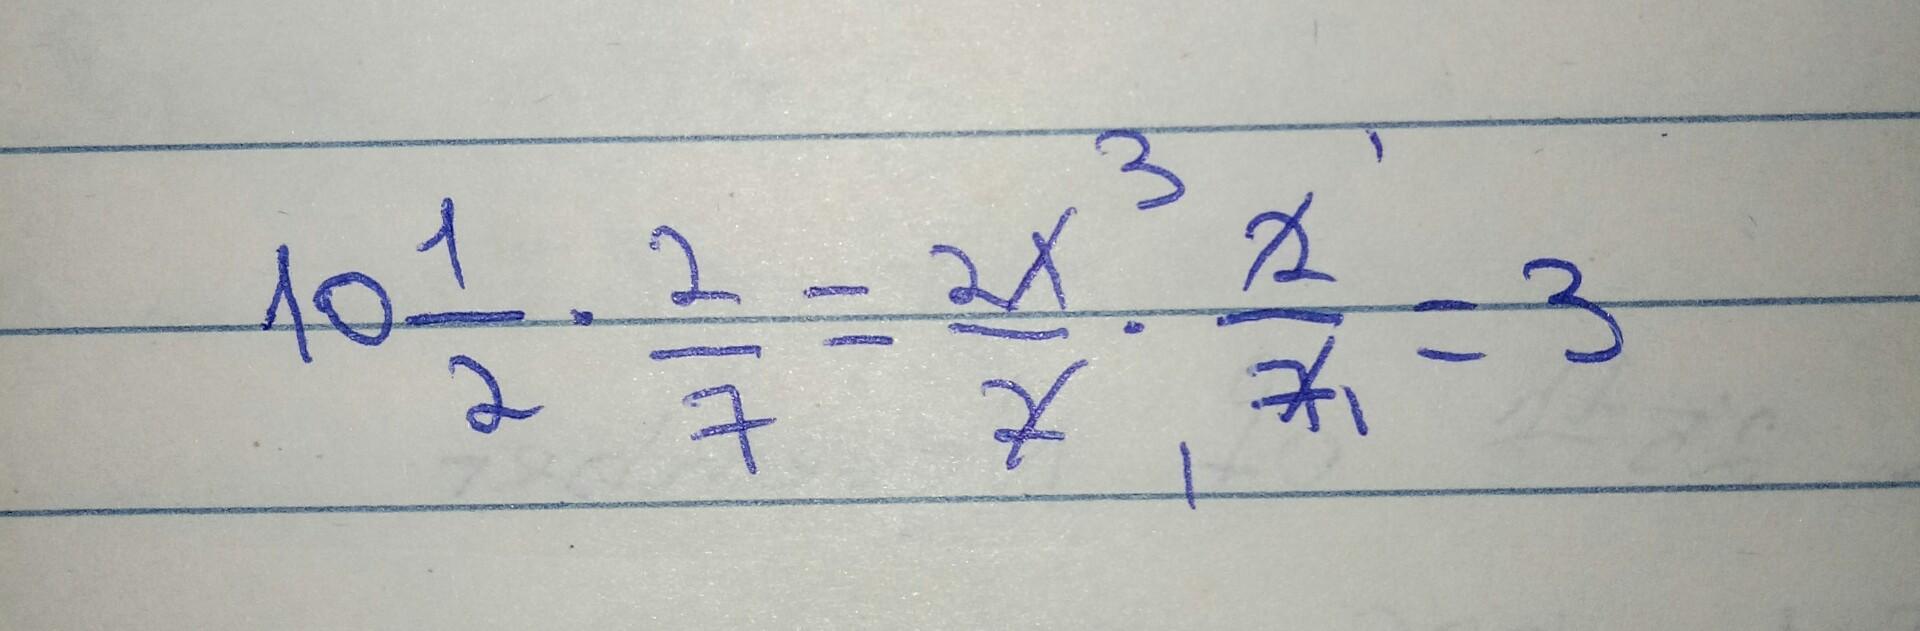 10 1/2 · 2/7 = 21³/2₁ · 2¹/7₁ = 3